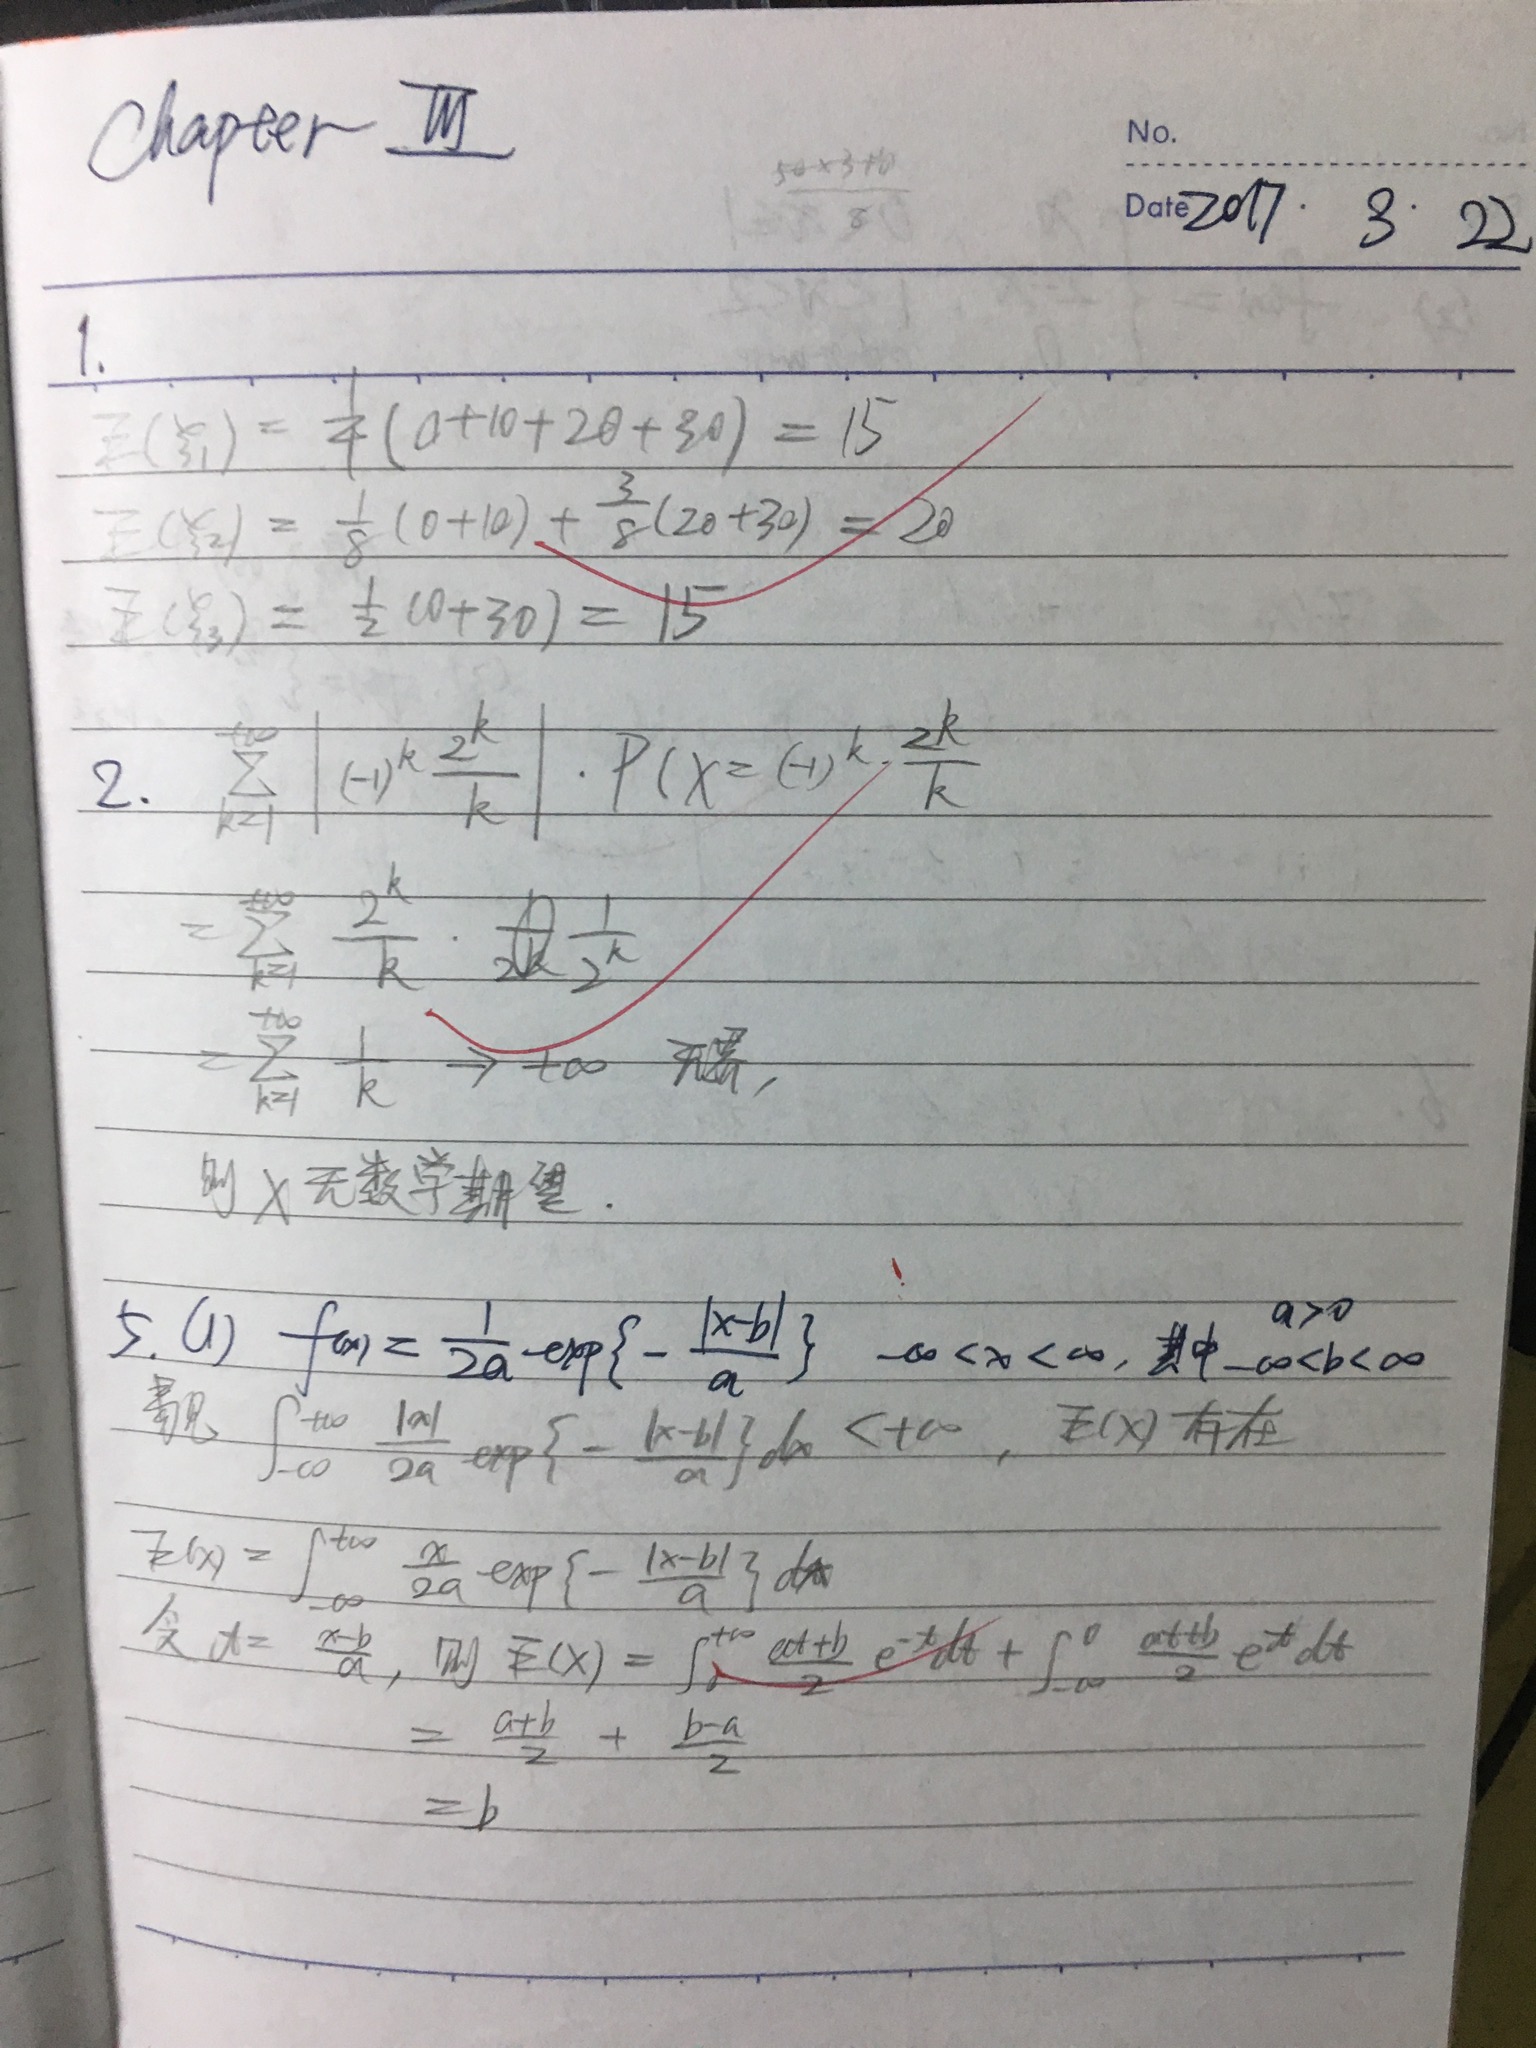 Chapter III
No.
Date 2017. 3. 22
1.
E(ξ₁) = 1/4 (0+10+20+30) = 15
E(ξ₂) = 1/8 (0+10) + 3/8 (20+30) = 20
E(ξ₃) = 1/2 (0+30) = 15
2. ∑_{k=1}^{+∞} |(-1)^k 2^k/k| · P(X = (-1)^k · 2^k/k
= ∑_{k=1}^{+∞} 2^k/k · 1/2^k
= ∑_{k=1}^{+∞} 1/k → +∞ 无界,
则 X 无数学期望.
5. (1) f(x) = 1/2a exp{- |x-b|/a} -∞ < x < ∞, 其中 a>0 -∞<b<∞
易见 ∫_{-∞}^{+∞} |x|/2a exp{- |x-b|/a} dx < +∞, E(X) 存在
E(X) = ∫_{-∞}^{+∞} x/2a exp{- |x-b|/a} dx
令 t = x-b/a, 则 E(X) = ∫_0^{+∞} at+b/2 e^{-t} dt + ∫_{-∞}^0 at+b/2 e^t dt
= a+b/2 + b-a/2
= b